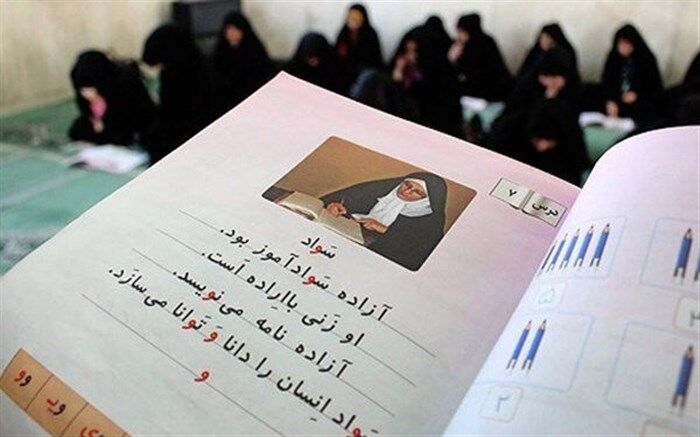 درس ۷
سَواد
آزاده سَوادآموز بود.
او زَنی بااِراده اَست.
آزاده نامه می‌نویسد.
سَواد اِنسان را دانا وَ تَوانا می‌سازَد.
و
و
ویـ
وو
۲